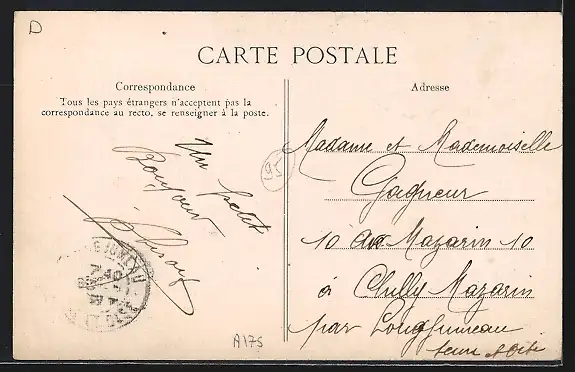 D
CARTE POSTALE
Correspondance
Tous les pays étrangers n'acceptent pas la
correspondance au recto, se renseigner à la poste.
Un petit
Bonjour
95
A175
Adresse
Madame et Mademoiselle
Gagneur
10 Mazarin 10
à Chilly Mazarin
par Longjumeau
Seine et Oise